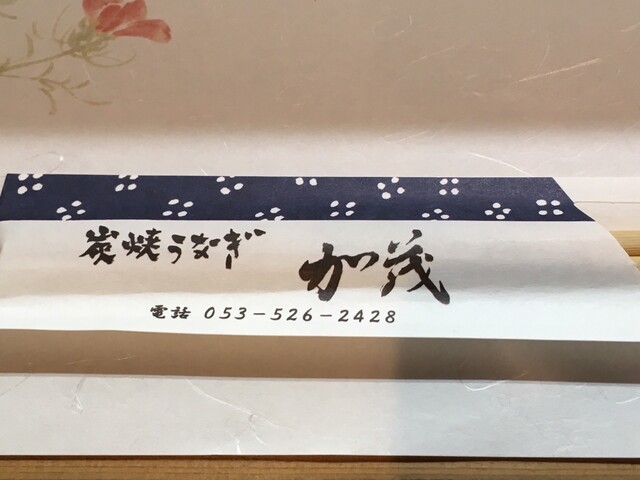 炭焼うなぎ 加茂
電話 053-526-2428